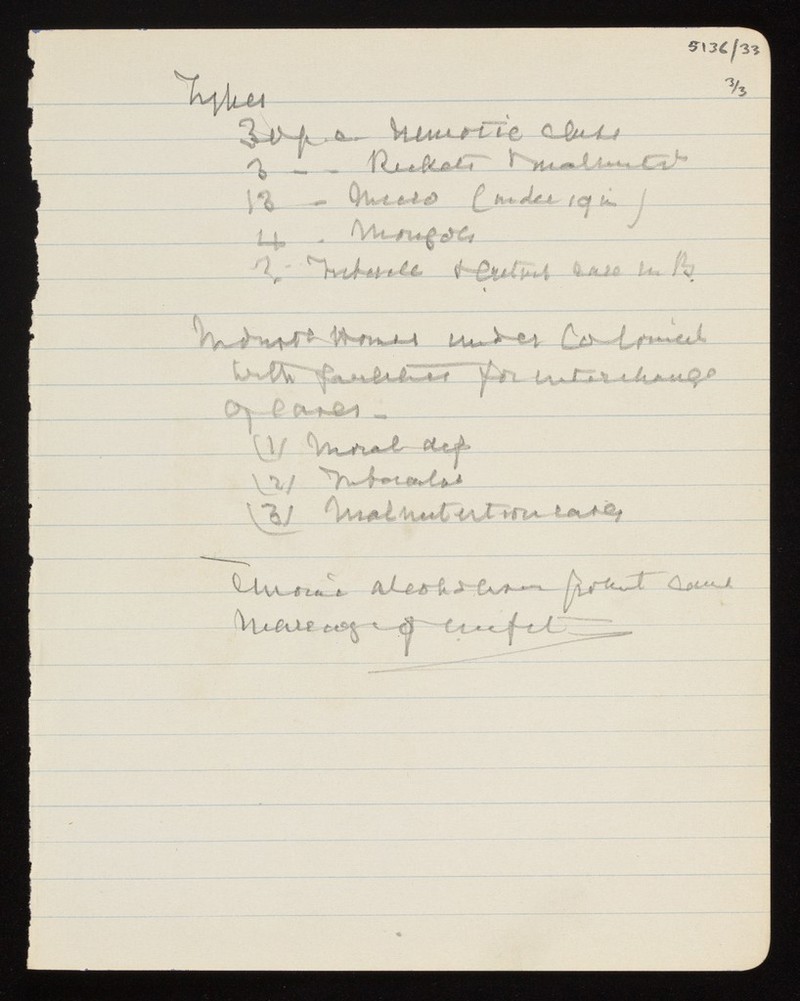 5136/33
3/3
Types
30 p.c. Neurotic class
3 - - Rickets & malnutrt
13 - Micro (under 19 in)
4 - Mongols
2 - Tubercle & case in B.
Industl Homes under Co Council
with facilities for interchange
of cases -
(1) Moral def
(2) Tubercular
(3) Malnutrition cases
Chronic alcoholism point same
Marriage of unfit